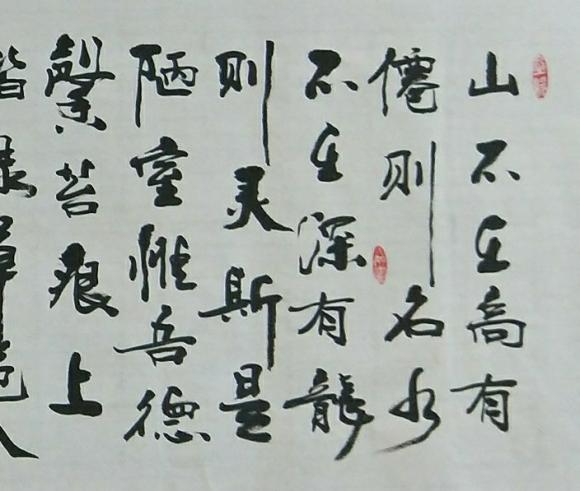 山不在高有
僊则名水
不在深有龍
则灵斯是
陋室惟吾德
馨苔痕上
草色入